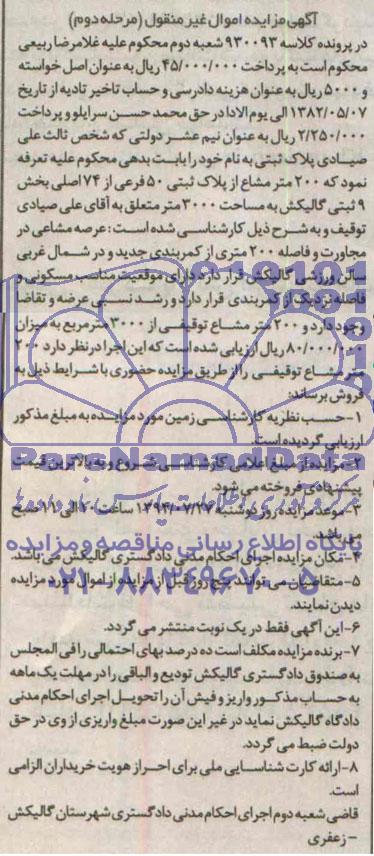 آگهی مزایده اموال غیر منقول (مرحله دوم)
در پرونده کلاسه ۹۳۰۰۹۳ شعبه دوم محکوم علیه غلامرضا ربیعی
محکوم است به پرداخت ۴۵/۰۰۰/۰۰۰ ریال به عنوان اصل خواسته
و ۵۰۰۰ ریال به عنوان هزینه دادرسی و حساب تاخیر تادیه از تاریخ
۱۳۸۲/۰۵/۰۷ الی یوم الادا در حق محمد حسن سرایلو و پرداخت
۲/۲۵۰/۰۰۰ ریال به عنوان نیم عشر دولتی که شخص ثالث علی
صیادی پلاک ثبتی به نام خود را بابت بدهی محکوم علیه تعرفه
نمود که ۲۰۰ متر مشاع از پلاک ثبتی ۵۰ فرعی از ۷۴ اصلی بخش
۹ ثبتی گالیکش به مساحت ۳۰۰۰ متر متعلق به آقای علی صیادی
توقیف و به شرح ذیل کارشناسی شده است: عرصه مشاعی در
مجاورت و فاصله ۲۰۰ متری از کمربندی جدید و در شمال غربی
سالن ورزشی گالیکش قرار دارد دارای موقعیت مناسب مسکونی و
فاصله نزدیک از کمربندی قرار دارد و رشد نسبی عرضه و تقاضا
وجود دارد و ۲۰۰ متر مشاع توقیفی از ۳۰۰۰ متر مربع به میزان
۸۰/۰۰۰/۰۰۰ ریال ارزیابی شده است که این اجرا در نظر دارد ۲۰۰
متر مشاع توقیفی را از طریق مزایده حضوری با شرایط ذیل به
فروش برساند:
۱- حسب نظریه کارشناسی زمین مورد مزایده به مبلغ مذکور
ارزیابی گردیده است.
۲- مزایده از مبلغ اعلامی کارشناسی شروع و به بالاترین قیمت
پیشنهادی فروخته می شود.
۳- موعد مزایده روز دوشنبه ۱۳۹۴/۰۷/۲۷ ساعت ۱۰ الی ۱۱ صبح
می باشد.
۴- مکان مزایده اجرای احکام مدنی دادگستری گالیکش می باشد.
۵- متقاضیان می توانند پنج روز قبل از مزایده از اموال مورد مزایده
دیدن نمایند.
۶- این آگهی فقط در یک نوبت منتشر می گردد.
۷- برنده مزایده مکلف است ده درصد بهای احتمالی را فی المجلس
به صندوق دادگستری گالیکش تودیع و الباقی را در مهلت یک ماهه
به حساب مذکور واریز و فیش آن را تحویل اجرای احکام مدنی
دادگاه گالیکش نماید در غیر این صورت مبلغ واریزی از وی در حق
دولت ضبط می گردد.
۸- ارائه کارت شناسایی ملی برای احراز هویت خریداران الزامی
است.
قاضی شعبه دوم اجرای احکام مدنی دادگستری شهرستان گالیکش
– زعفری
ParsNamadData
پایگاه اطلاع رسانی مناقصه و مزایده
۰۲۱-۸۸۳۴۹۶۷۰-۵